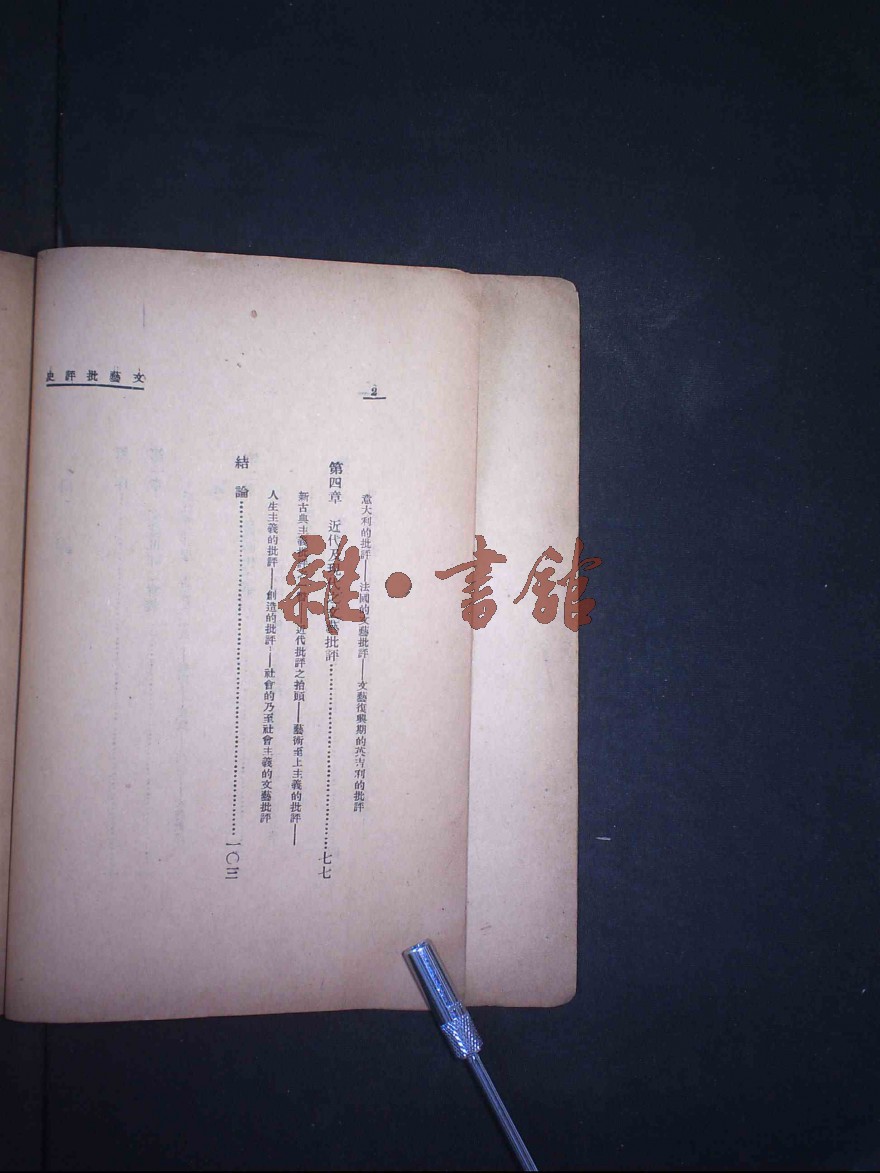 文藝批評史
2
意大利的批評——法國的文藝批評——文藝復興期的英吉利的批評
第四章 近代及現代的文藝批評……七七
新古典主義批評 近代批評之抬頭——藝術至上主義的批評——
人生主義的批評——創造的批評——社會的乃至社會主義的文藝批評
結論……一〇三
雜·書館